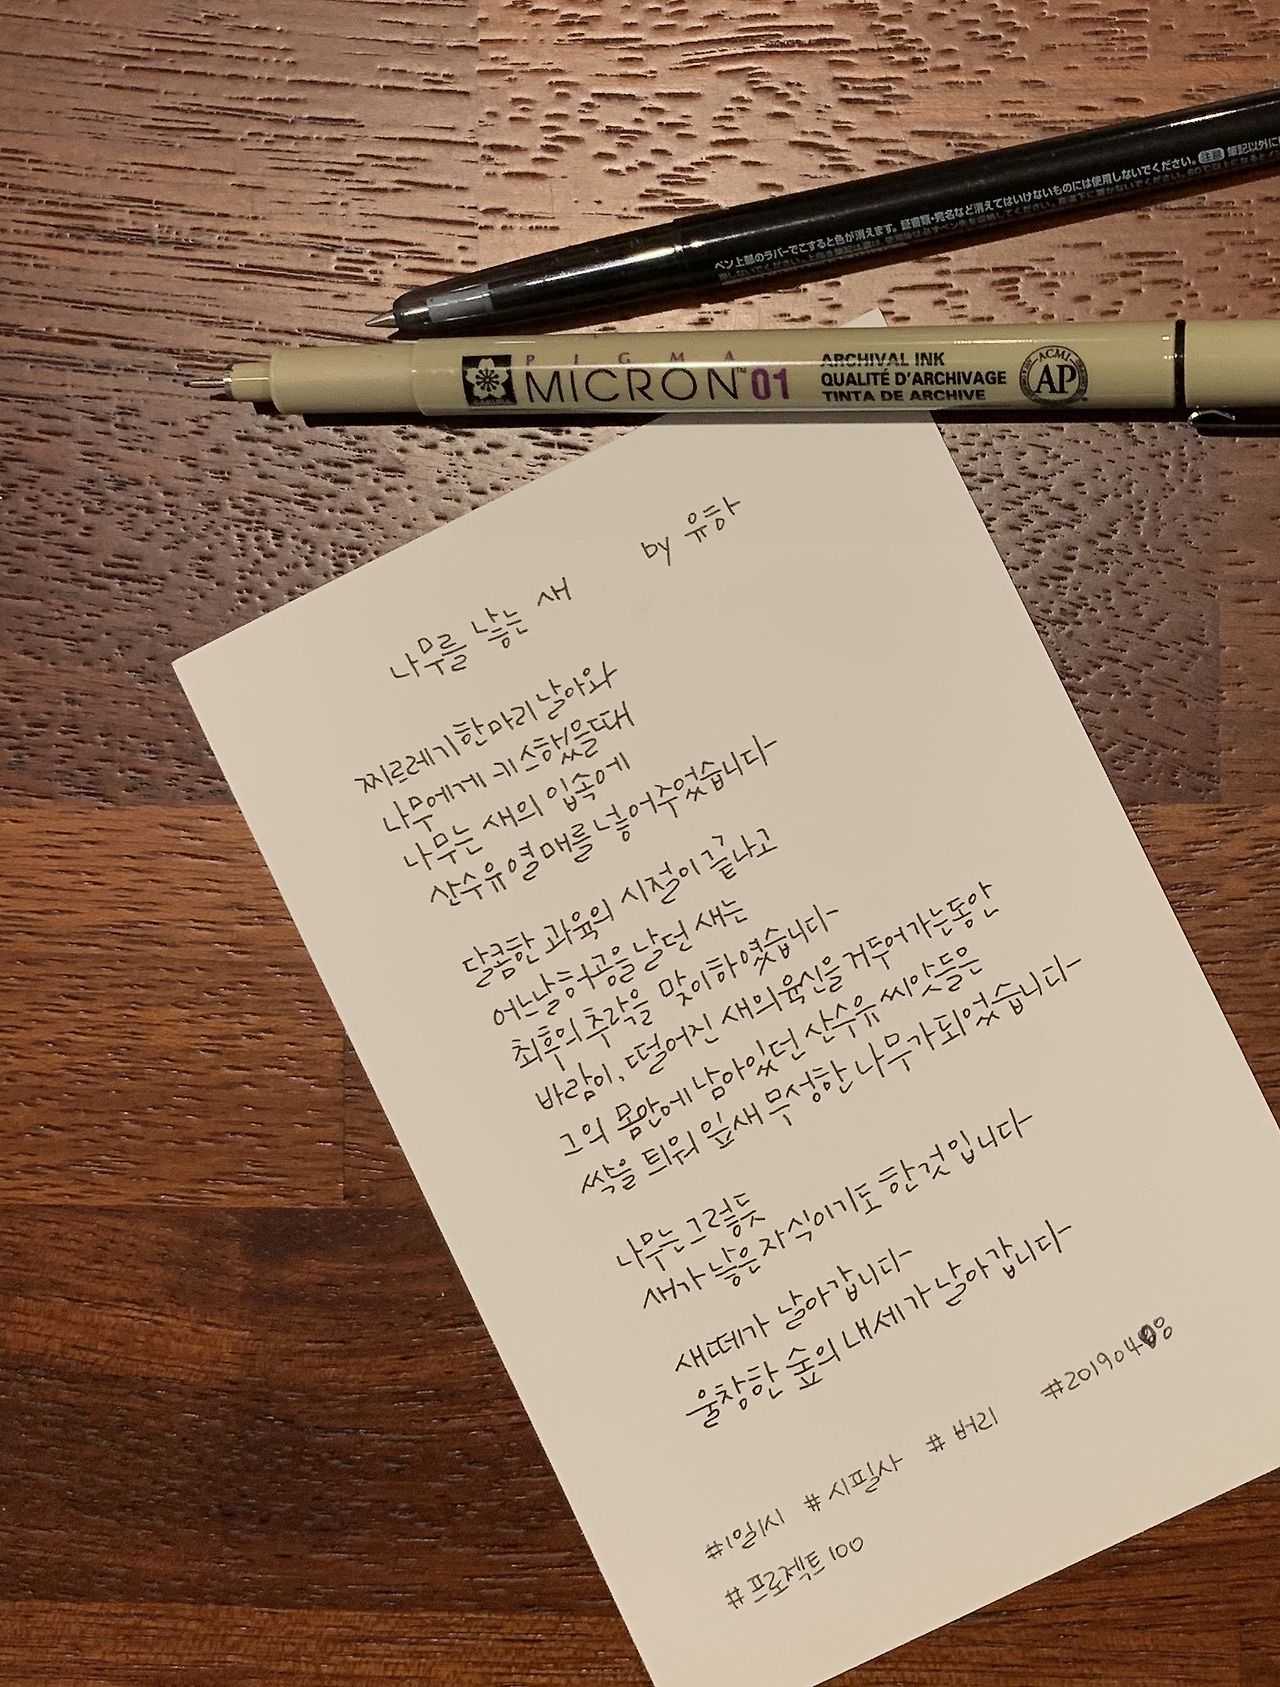 ペン上部のラバーでこすると色が消えます。証書類・宛名など消えてはいけないものには使用しないでください。 注意 筆記以外に
PIGMA
MICRON™ 01
ARCHIVAL INK
QUALITÉ D'ARCHIVAGE
TINTA DE ARCHIVE
ACMI
AP
by 유하
나무를 낳는 새
찌르레기 한마리 날아와
나무에게 키스했을때
나무는 새의 입속에
산수유 열매를 넣어주었습니다
달콤한 과육의 시절이 끝나고
어느날 허공을 날던 새는
최후의 추락을 맞이하였습니다
바람이, 떨어진 새의 육신을 거두어 가는동안
그의 몸안에 남아있던 산수유 씨앗들은
싹을 틔워 잎새 무성한 나무가 되었습니다
나무는 그렇듯
새가 낳은 자식이기도 한것입니다
새떼가 날아갑니다
울창한 숲의 내세가 날아갑니다
#1일1시 #시필사 #버리 #20190408
#프로젝트100